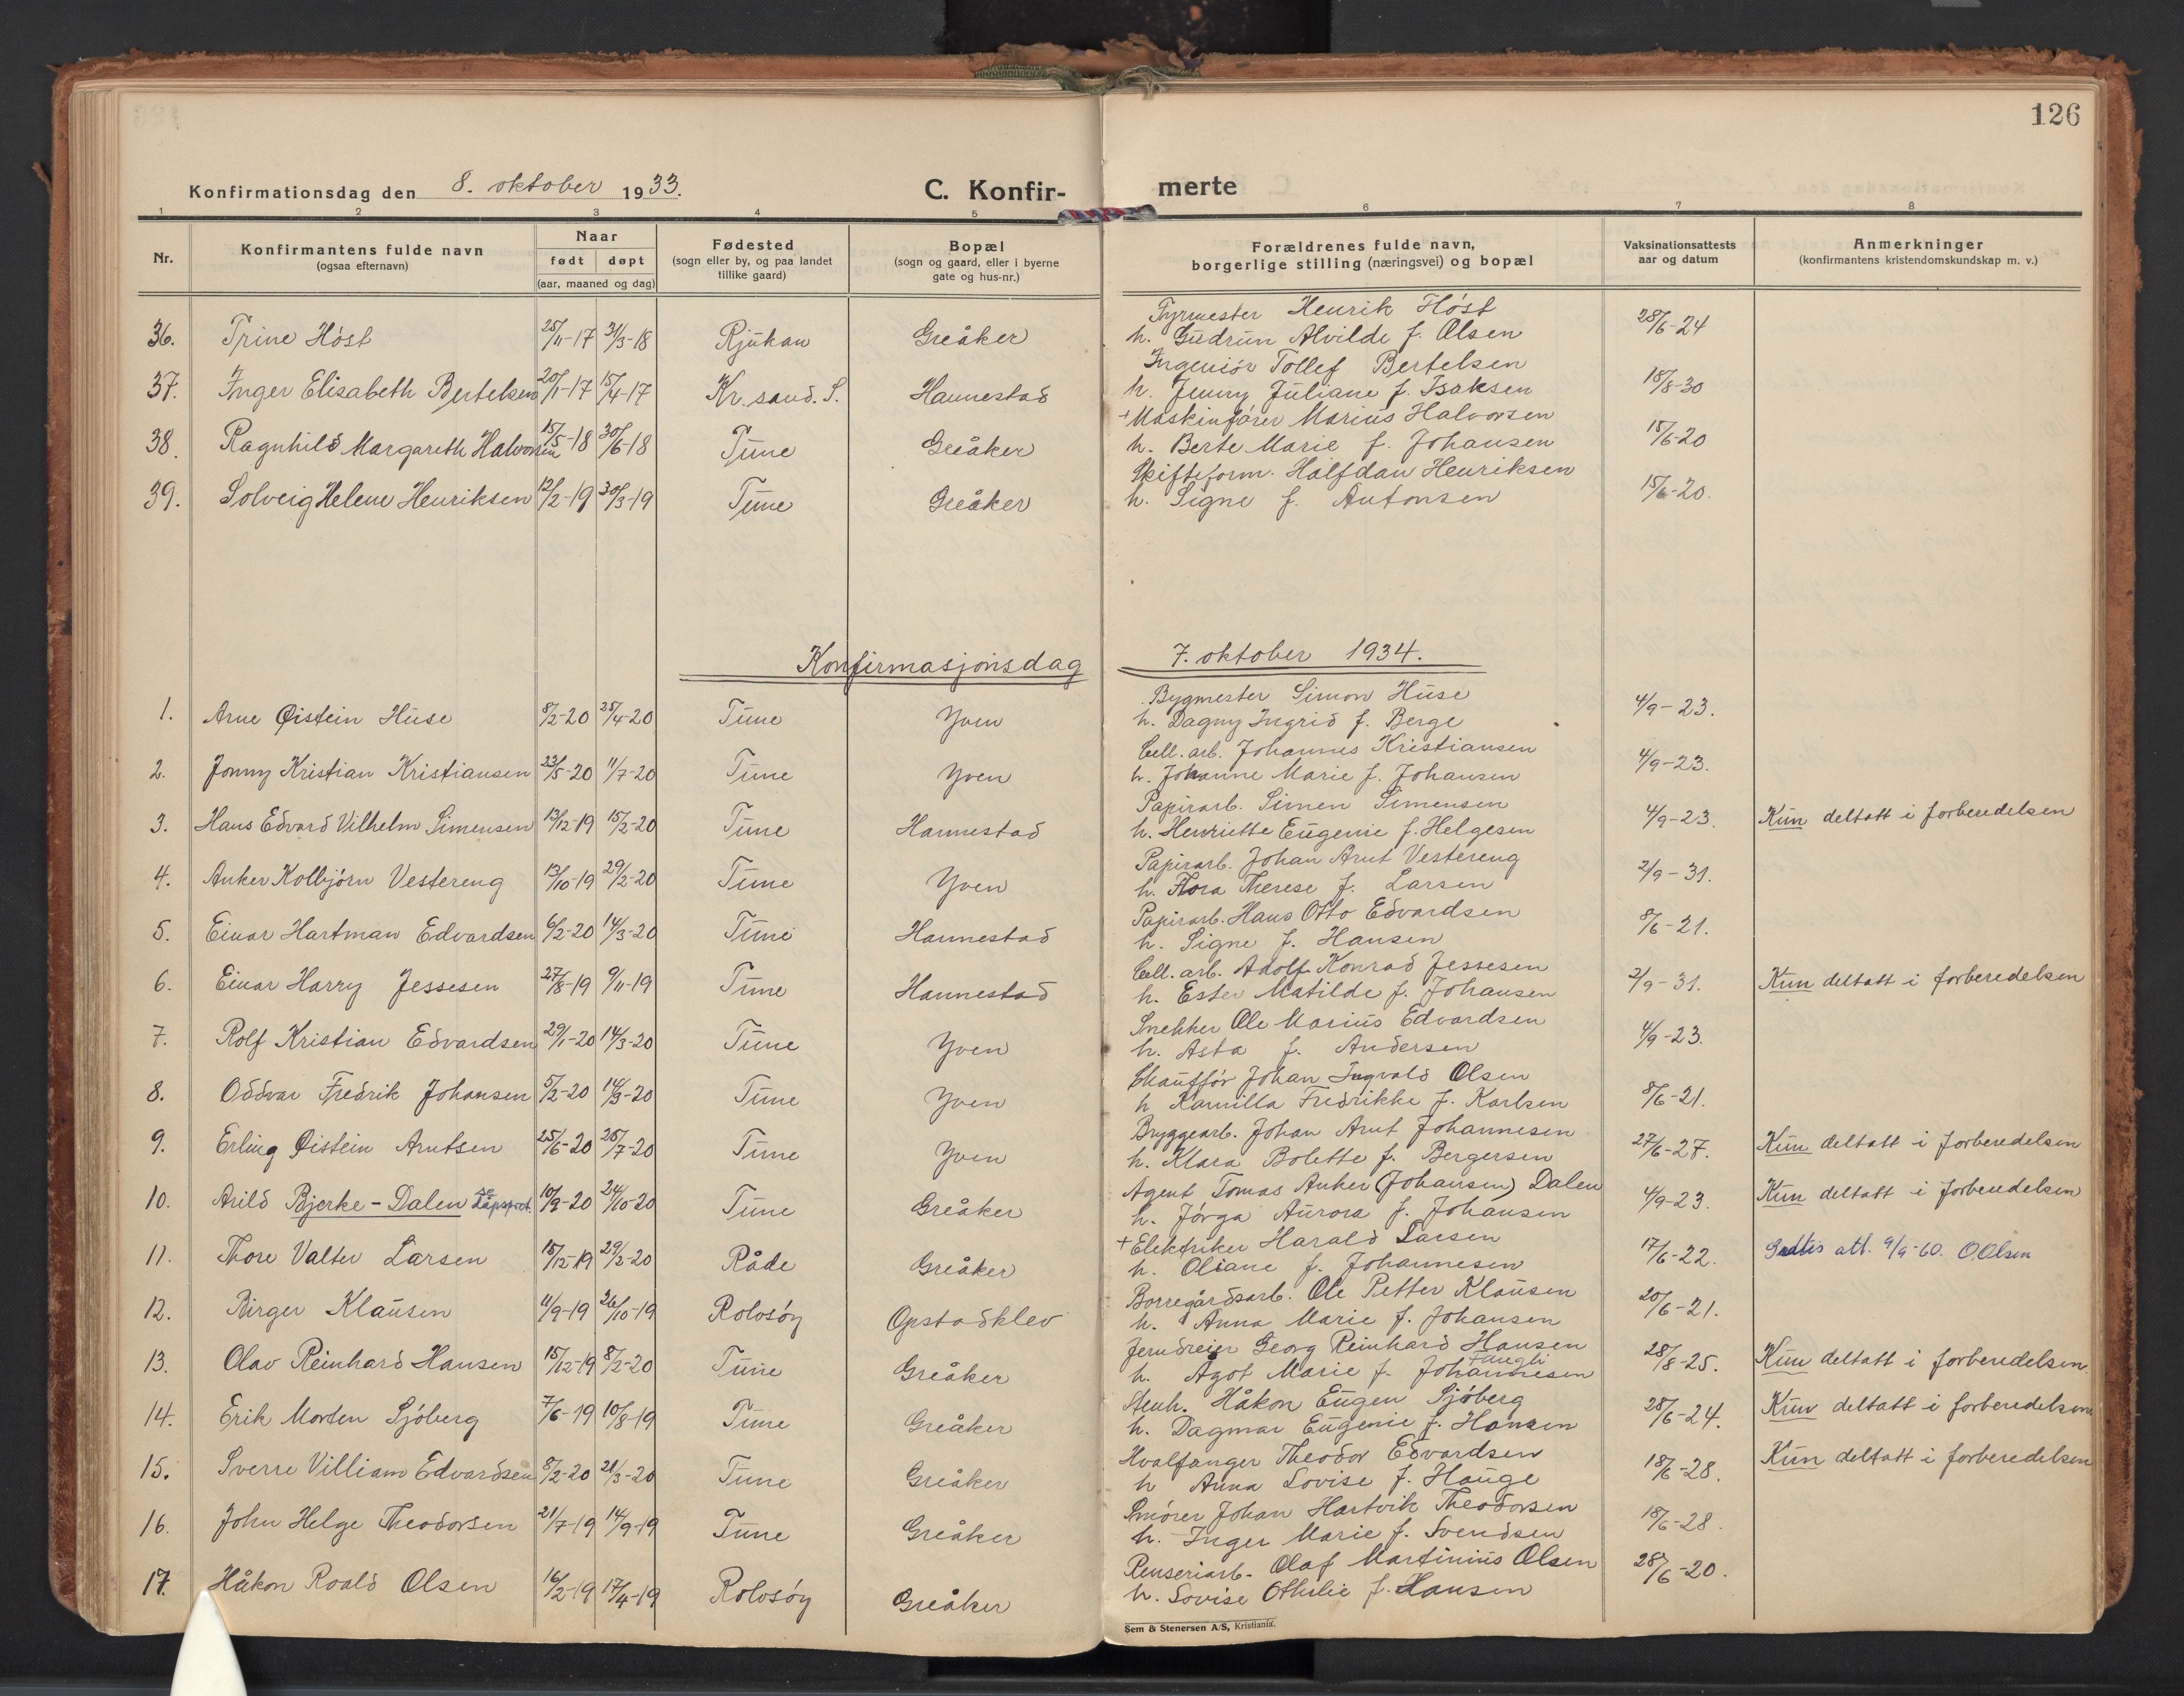 126
Konfirmationsdag den 8. oktober 1933. C. Konfir- merte
1 2 3 4 5 6 7 8
Nr. Konfirmantens fulde navn (ogsaa efternavn) Naar født døpt (aar, maaned og dag) Fødested (sogn eller by, og paa landet tillike gaard) Bopæl (sogn og gaard, eller i byerne gate og hus-nr.) Forældrenes fulde navn, borgerlige stilling (næringsvei) og bopæl Vaksinationsattests aar og datum Anmerkninger (konfirmantens kristendomskundskap m. v.)
36. Trine Høst 25/11-17 31/3-18 Rjukan Greåker Fyrmester Henrik Høst 28/6-24
h. Gudrun Alvilde f. Olsen
37. Inger Elisabeth Bertelsen 20/1-17 15/4-17 Kr. sand. S. Hannestad Ingeniør Tollef Bertelsen 18/8-30
h. Jenny Juliane f. Isaksen
38. Ragnhild Margareth Halvorsen 15/5-18 30/6-18 Tune Greåker + Maskinfører Marius Halvorsen 15/6-20
h. Berte Marie f. Johansen
39. Solveig Helene Henriksen 12/2-19 30/3-19 Tune Greåker Skifteform. Halfdan Henriksen 15/6-20.
h. Signe f. Antonsen
Konfirmasjonsdag 7. oktober 1934.
1. Arne Øistein Huse 8/2-20 25/4-20 Tune Yven Bygmester Simon Huse 4/9-23.
h. Dagny Ingrid f. Berge
2. Jonny Kristian Kristiansen 23/5-20 11/7-20 Tune Yven Cell. arb. Johannes Kristiansen 4/9-23.
h. Johanne Marie f. Johansen
3. Hans Edvard Vilhelm Simensen 13/12-19 15/2-20 Tune Hannestad Papirarb. Simen Simensen 4/9-23. Kun deltatt i forberedelsen
h. Henriette Eugenie f. Helgesen
4. Anker Kolbjørn Vestereng 13/10-19 29/2-20 Tune Yven Papirarb. Johan Arnt Vestereng 2/9-31.
h. Flora Therese f. Larsen
5. Einar Hartman Edvardsen 6/2-20 14/3-20 Tune Hannestad Papirarb. Hans Otto Edvardsen 8/6-21.
h. Signe f. Hansen
6. Einar Harry Jessesen 27/8-19 9/11-19 Tune Hannestad Cell. arb. Adolf Konrad Jessesen 2/9-31. Kun deltatt i forberedelsen
h. Ester Matilde f. Johansen
7. Rolf Kristian Edvardsen 29/1-20 14/3-20 Tune Yven Snekker Ole Marius Edvardsen 4/9-23.
h. Asta f. Andersen
8. Oddvar Fredrik Johansen 5/2-20 14/3-20 Tune Yven Chauffør Johan Ingvald Olsen 8/6-21.
h Kamilla Fredrikke f. Karlsen
9. Erling Øistein Arntsen 25/5-20 25/7-20 Tune Yven Bryggearb. Johan Arnt Johannesen 27/6-27. Kun deltatt i forberedelsen
h. Klara Bolette f. Bergersen
10. Arild Bjerke-Dalen se dåpsprot. 10/9-20 24/10-20 Tune Greåker Agent Tomas Anker (Johansen) Dalen 4/9-23. Kun deltatt i forberedelsen
h. Jørga Aurora f. Johansen
11. Thore Valter Larsen 15/12-19 29/2-20 Råde Greåker + Elektriker Harald Larsen 17/6-22. Gratis att. 9/9-60. O.Olsen
h. Oliane f. Johannesen
12. Birger Klausen 11/9-19 26/10-19 Rolvsøy Opstadklev Borregårdsarb. Ole Petter Klausen 20/6-21.
h. Anna Marie f. Johansen
13. Olav Reinhard Hansen 15/12-19 8/2-20 Tune Greåker Jerndreier Georg Reinhard Hansen 28/8-25. Kun deltatt i forberedelsen.
h. Agot Marie f. Johannesen
14. Erik Morten Sjøberg 7/6-19 10/8-19 Tune Greåker Stenh. Håkon Eugen Sjøberg 28/6-24. Kun deltatt i forberedelsen
h. Dagmar Eugenie f. Hansen
15. Sverre Villiam Edvardsen 8/2-20 21/3-20 Tune Greåker Hvalfanger Theodor Edvardsen 18/6-28. Kun deltatt i forberedelsen
h Anna Lovise f. Hauge
16. John Helge Theodorsen 21/7-19 14/9-19 Tune Greåker Smører Johan Hartvik Theodorsen 18/6-28.
h. Inger Marie f. Svendsen
17. Håkon Roald Olsen 16/2-19 17/4-19 Rolvsøy Greåker Renseriarb. Olaf Martinius Olsen 28/6-20.
h. Lovise Othilie f. Hansen
Sem & Stenersen A/S, Kristiania.